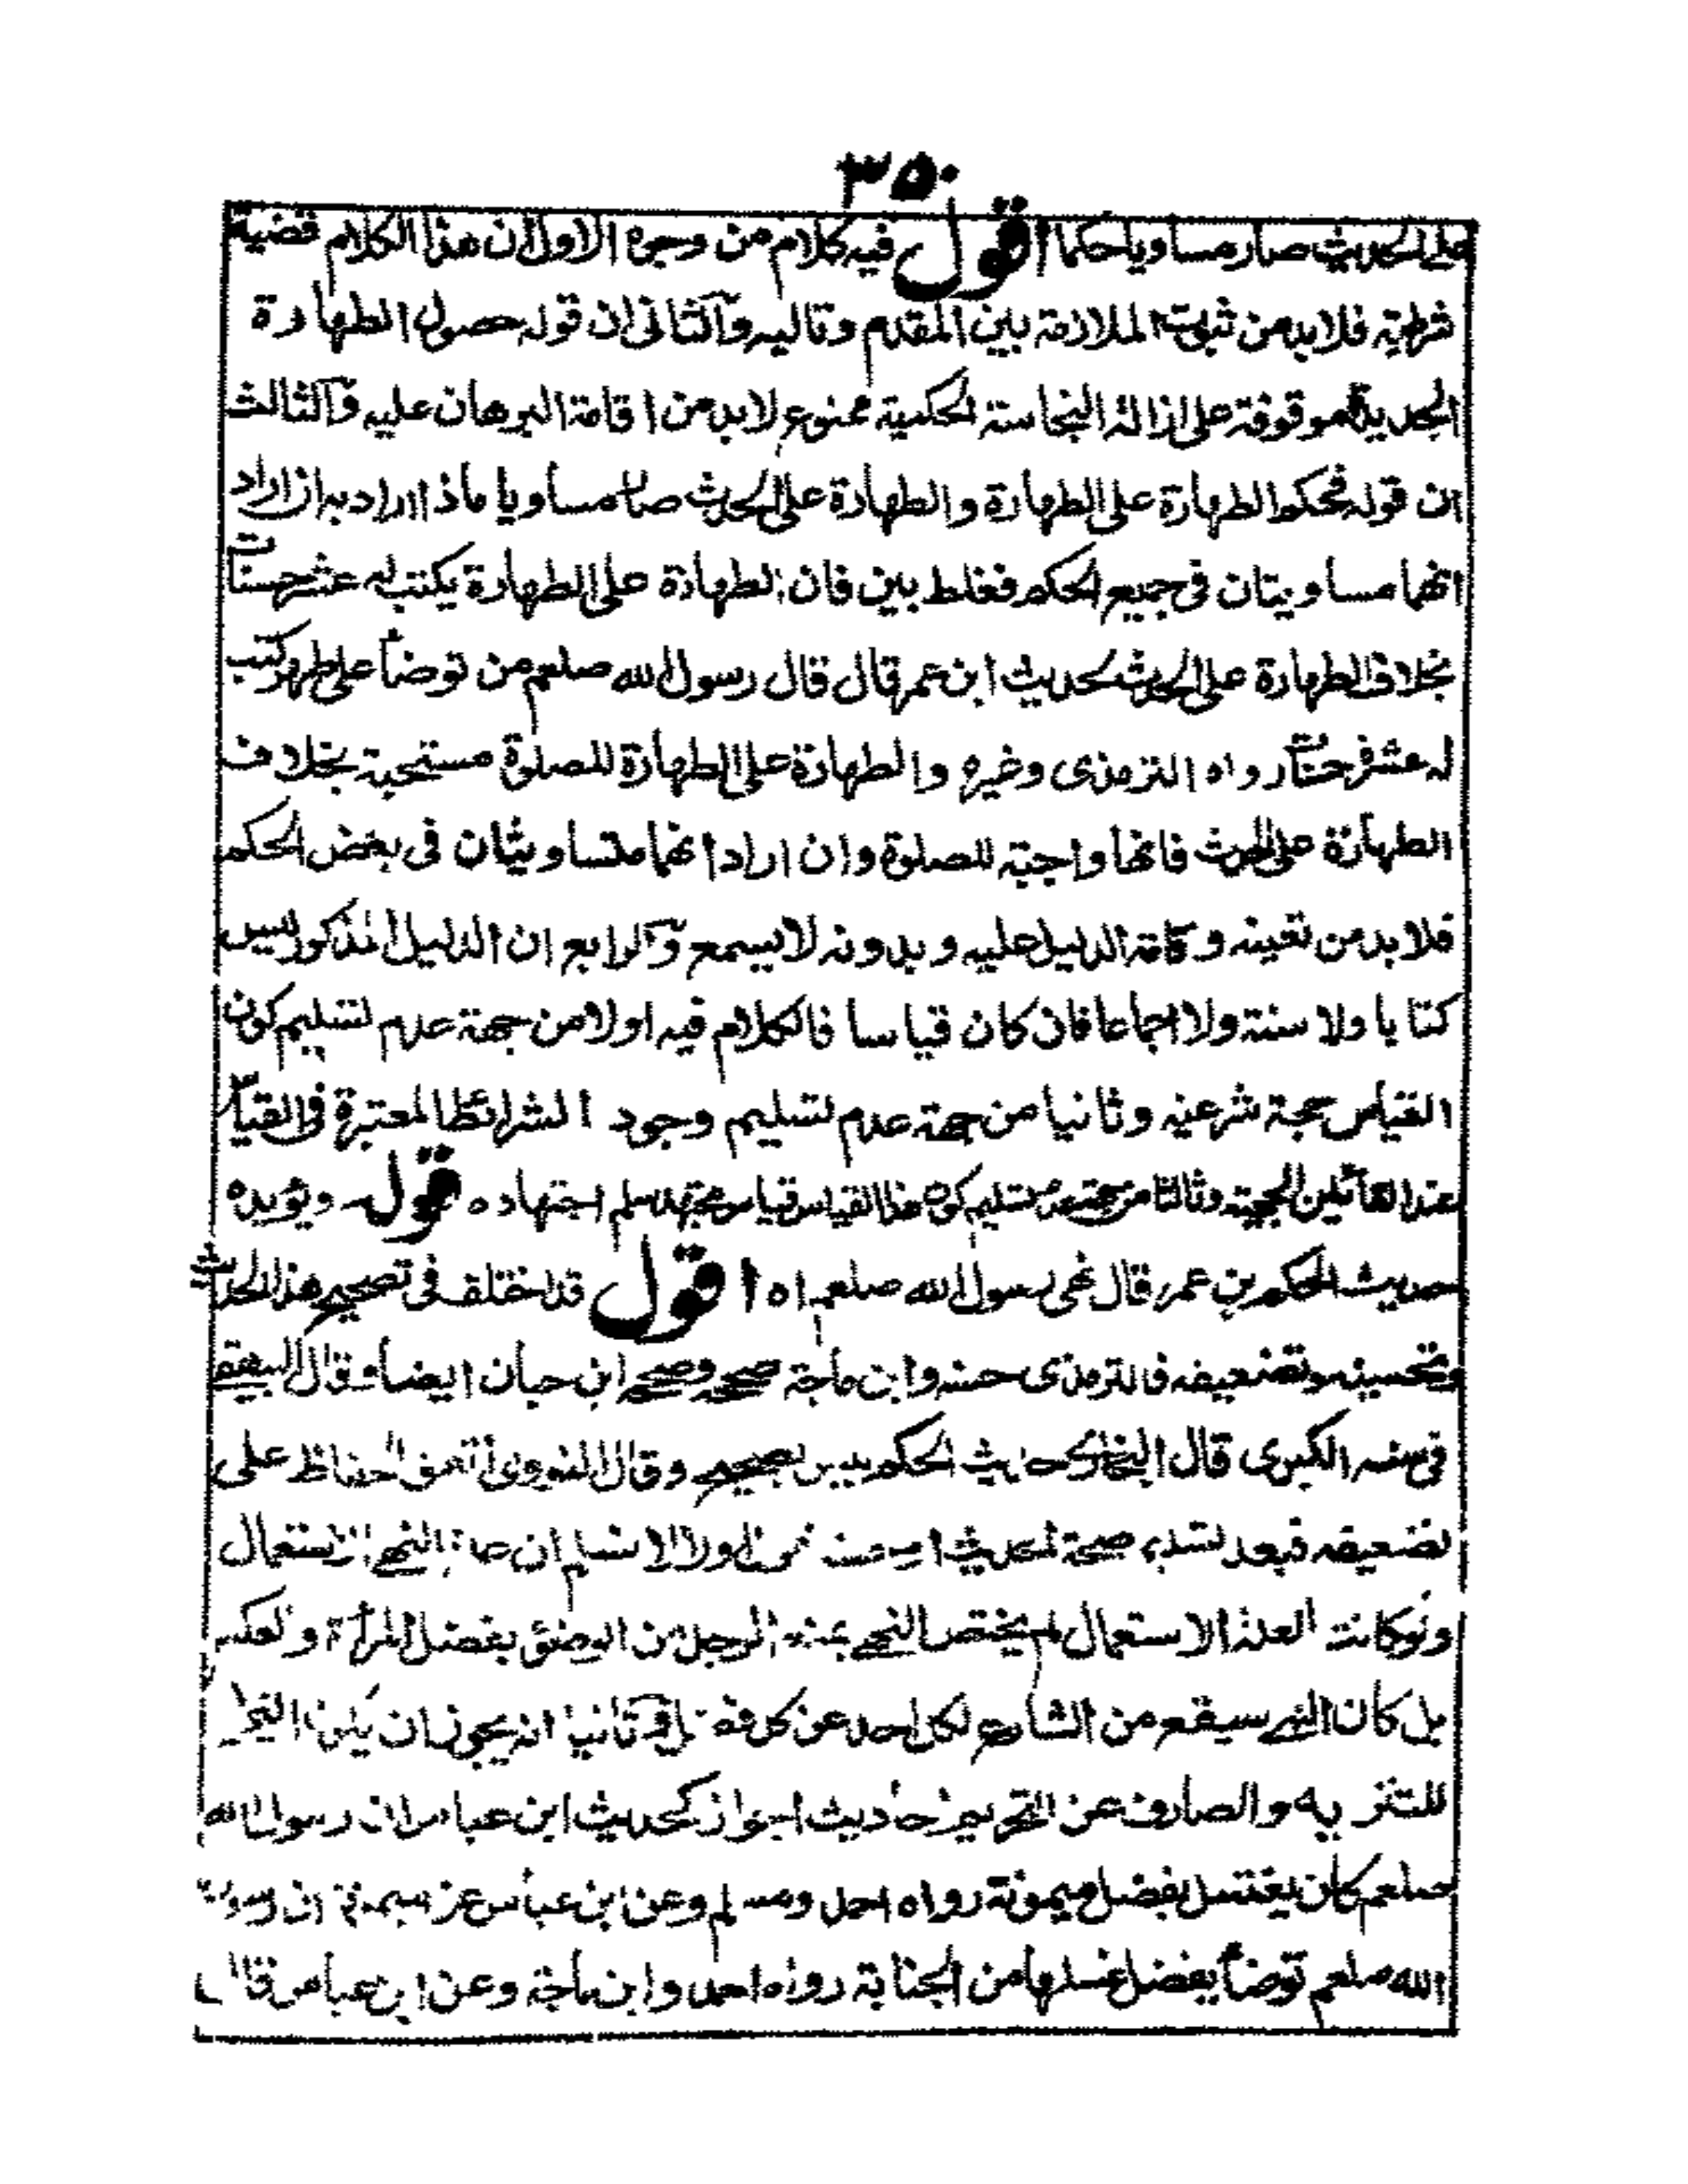 ٣٥٠
على الحديث صار مساويا حكما اقول فيه كلام من وجوه الاول ان هذا الكلام قضية
شرطية فلا بد من ثبوت الملازمة بين المقدم وتاليه والثانى ان قوله حصول الطهارة
الجديدة موقوفة على ازالة النجاسة الحكمية ممنوع لا بد من اقامة البرهان عليه والثالث
ان قوله فحكم الطهارة على الطهارة والطهارة على الحدث صار مساويا ماذا اراد به ان اراد
انهما مساويتان فى جميع الحكم فغلط بين فان الطهارة على الطهارة يكتب له عشر حسنات
بخلاف الطهارة على الحدث لحديث ابن عمر قال قال رسول الله صلعم من توضأ على طهر كتب
له عشر حسنات رواه الترمذى وغيره والطهارة على الطهارة للصلوة مستحبة بخلاف
الطهارة على الحدث فانها واجبة للصلوة وان اراد انهما متساويتان فى بعض الحكم
فلا بد من تعينه واقامة الدليل عليه وبدونه لا يسمع والرابع ان الدليل المذكور ليس
كتابا ولا سنة ولا اجماعا فان كان قياسا فالكلام فيه اولا من جهة عدم تسليم كون
القياس حجة شرعية وثانيا من جهة عدم تسليم وجود الشرائط المعتبرة فى القياس
عند القائلين بالحجية وثالثا من جهة عدم تسليم كون هذا القياس قياس مجتهد سلم اجتهاده قوله ويؤيده
حديث الحكم بن عمر قال نهى رسول الله صلعم اه اقول قد اختلف فى تصحيح هذا الحديث
وتحسينه وتضعيفه فالترمذى حسنه وابن ماجة صححه وصححه ابن حبان ايضا وقال البيهقى
فى سننه الكبرى قال البخارى حديث الحكم ليس بصحيح وقال النووى اتفق الحفاظ على
تضعيفه فبعد تسليم صحة الحديث او حسنه نقول اولا لا نسلم ان علة النهى الاستعمال
ولو كانت العلة الاستعمال لم يختص النهى بمنع الرجل من الوضوء بفضل المرأة والعكس
بل كان النهى سيقع من الشارع لكل احد عن كل فضل وثانيا انه يجوز ان يكون النهى
للتنزيه والصارف عن التحريم احاديث الجواز كحديث ابن عباس ان رسول الله
صلعم كان يغتسل بفضل ميمونة رواه احمد ومسلم وعن ابن عباس عن ميمونة ان رسول
الله صلعم توضأ بفضل غسلها من الجنابة رواه احمد وابن ماجة وعن ابن عباس قال